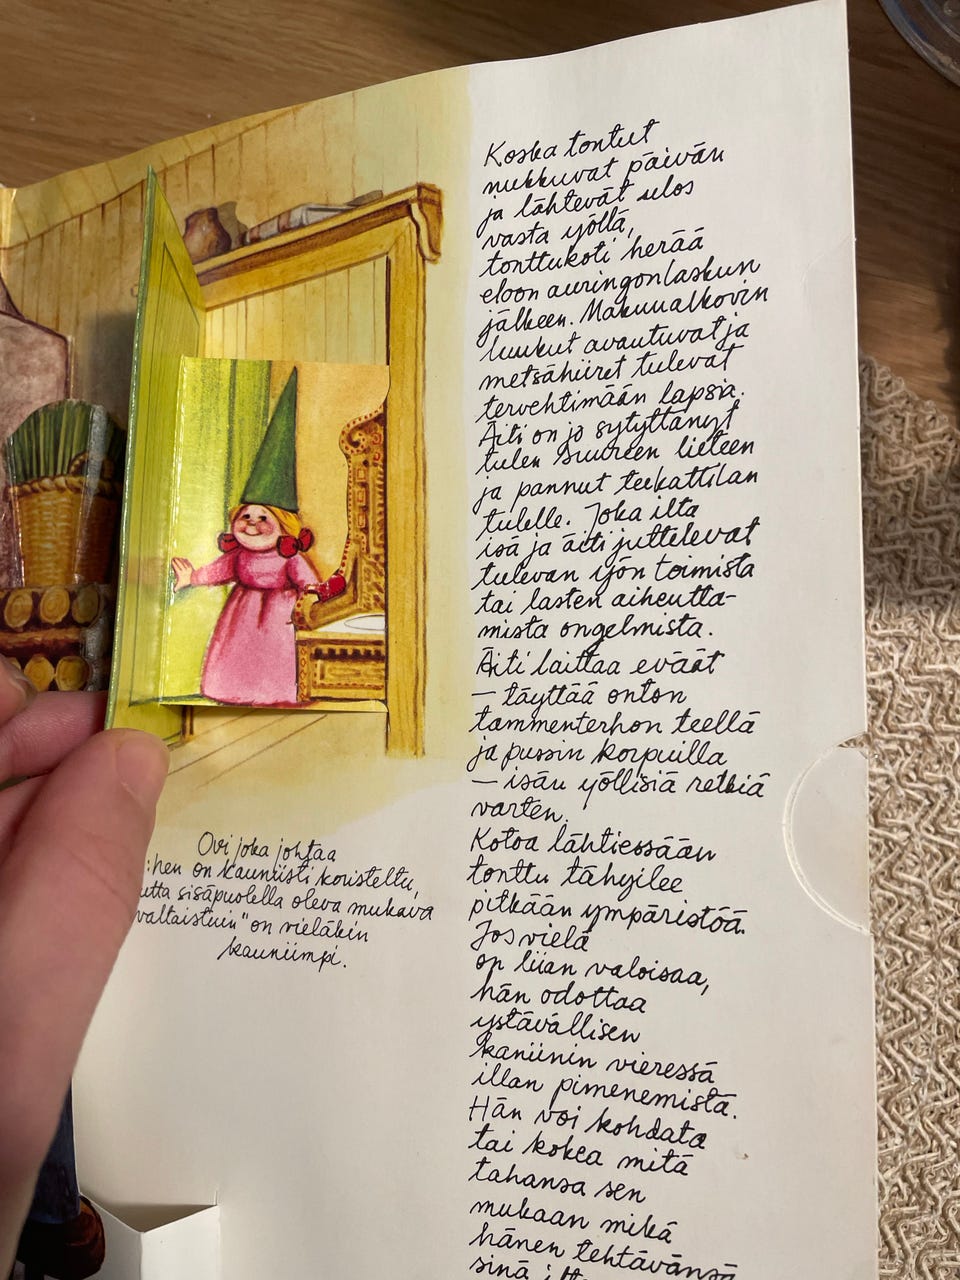 Koska tontut
nukkuvat päivän
ja lähtevät ulos
vasta yöllä,
tonttukoti herää
eloon auringonlaskun
jälkeen. Makuualkovin
luukut avautuvat ja
metsähiiret tulevat
tervehtimään lapsia.
Äiti on jo sytyttänyt
tulen suureen lieteen
ja pannut teekattilan
tulelle. Joka ilta
isä ja äiti juttelevat
tulevan yön toimista
tai lasten aiheutta-
mista ongelmista.
Äiti laittaa eväät
– täyttää onton
tammenterhon teellä
ja pussin korpuilla
– isän yöllisiä retkiä
varten.
Kotoa lähtiessään
tonttu tähyilee
pitkään ympäristöä.
Jos vielä
on liian valoisaa,
hän odottaa
ystävällisen
kaniinin vieressä
illan pimenemistä.
Hän voi kohdata
tai kokea mitä
tahansa sen
mukaan mikä
hänen tehtävänsä
sinä
Ovi joka johtaa
on kauniisti koristeltu,
sisäpuolella oleva mukava
valtaistuin" on vieläkin
kauniimpi.